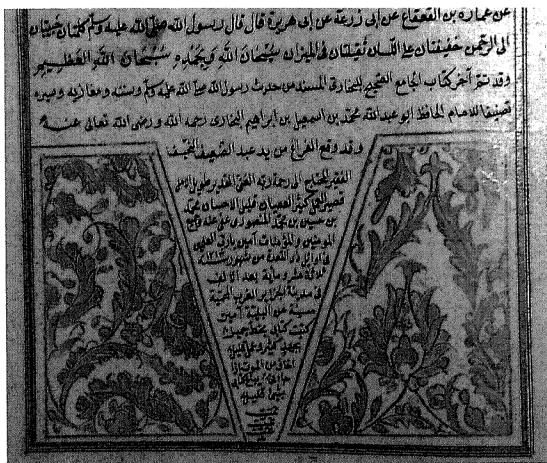 عن عمارة بن القعقاع عن ابى زرعة عن ابى هريرة قال قال رسول الله صلى الله عليه وسلم كلمتان حبيبتان
الى الرحمن خفيفتان على اللسان ثقيلتان في الميزان سبحان الله وبحمده سبحان الله العظيم
وقد تم آخر كتاب الجامع الصحيح للبخارى المسند من حديث رسول الله صلى الله عليه وسلم وسننه ومغازيه وغيره
تصنيف الامام الحافظ ابو عبد الله محمد بن اسمعيل بن ابراهيم البخارى رحمه الله ورضى الله تعالى عنه
وقد وقع الفراغ من يد عبد الضعيف النحيف
الفقير المحتاج الى رحمة ربه الغنى القدير طويل الامل
قصير العمل كثير العصيان قليل الاحسان محمد
بن حسين بن محمد المنصورى
المومنين والمؤمنات آمين يا رب العالمين
في اوائل ذى القعدة من شهور سنة
ثلاثة عشر وماية بعد الف
في مدينة الجزاير الغرب المحمية
عن البلية آمين
كتبت كتابى بخط جميل